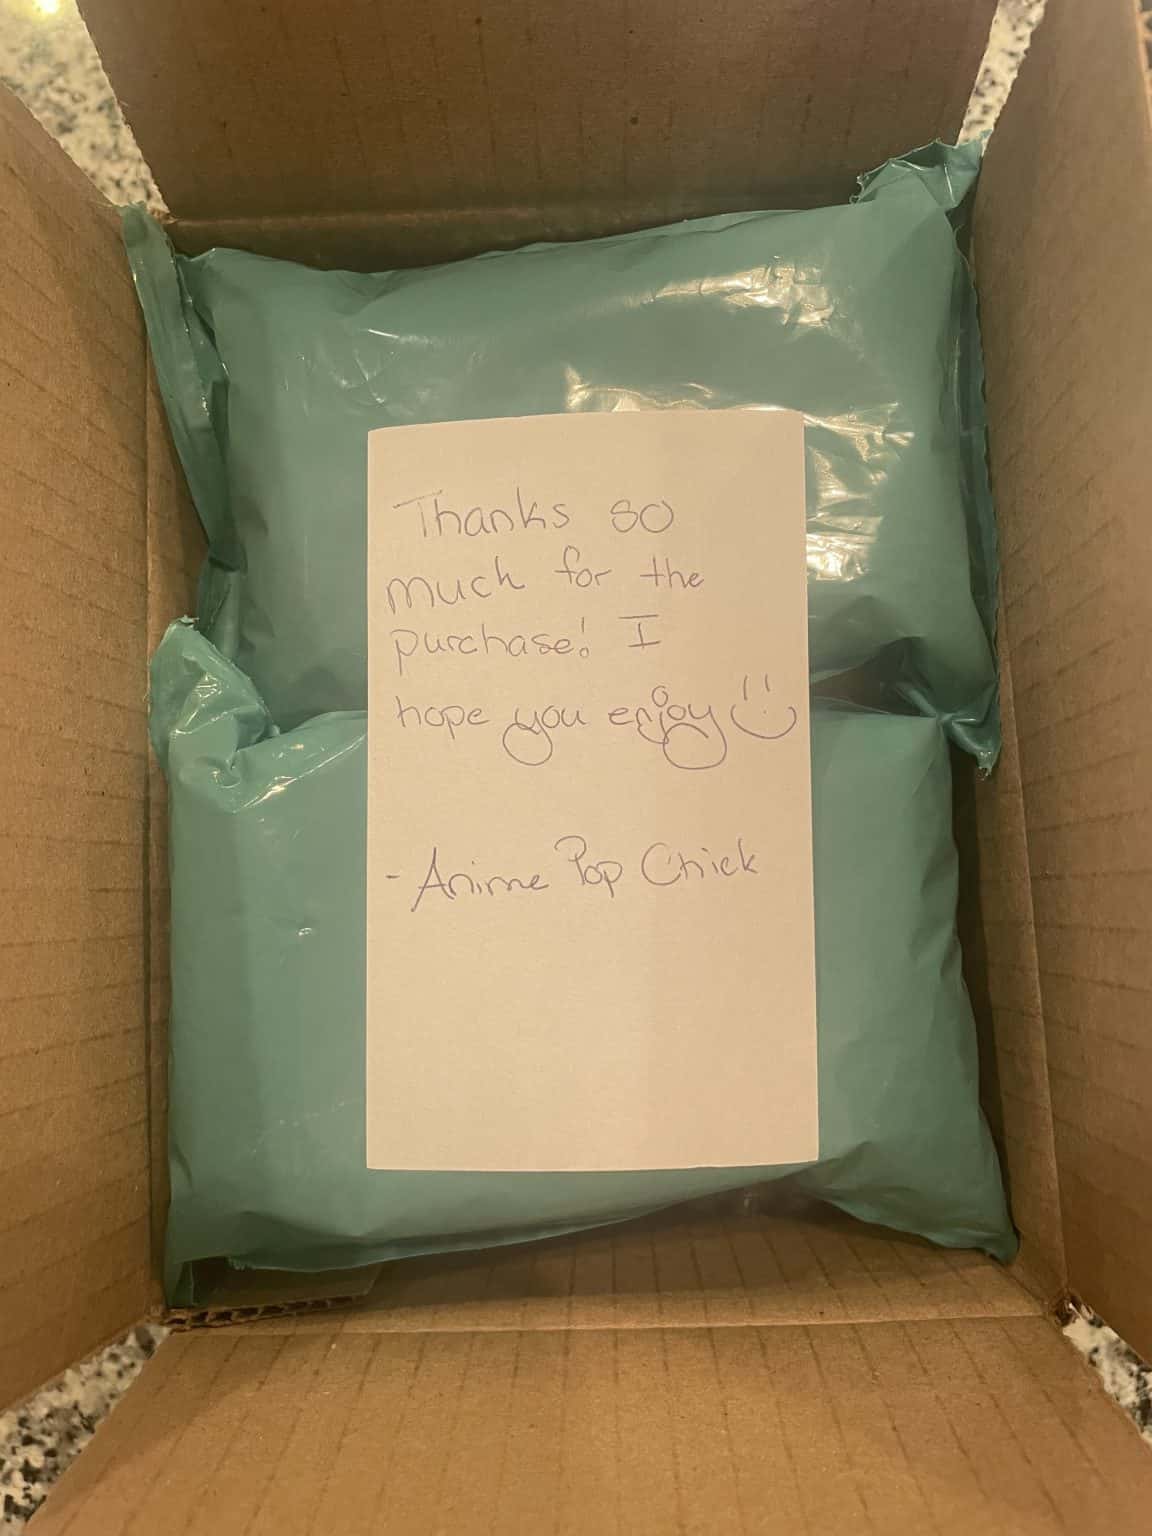 Thanks so
much for the
purchase! I
hope you enjoy
- Anime Pop Chick